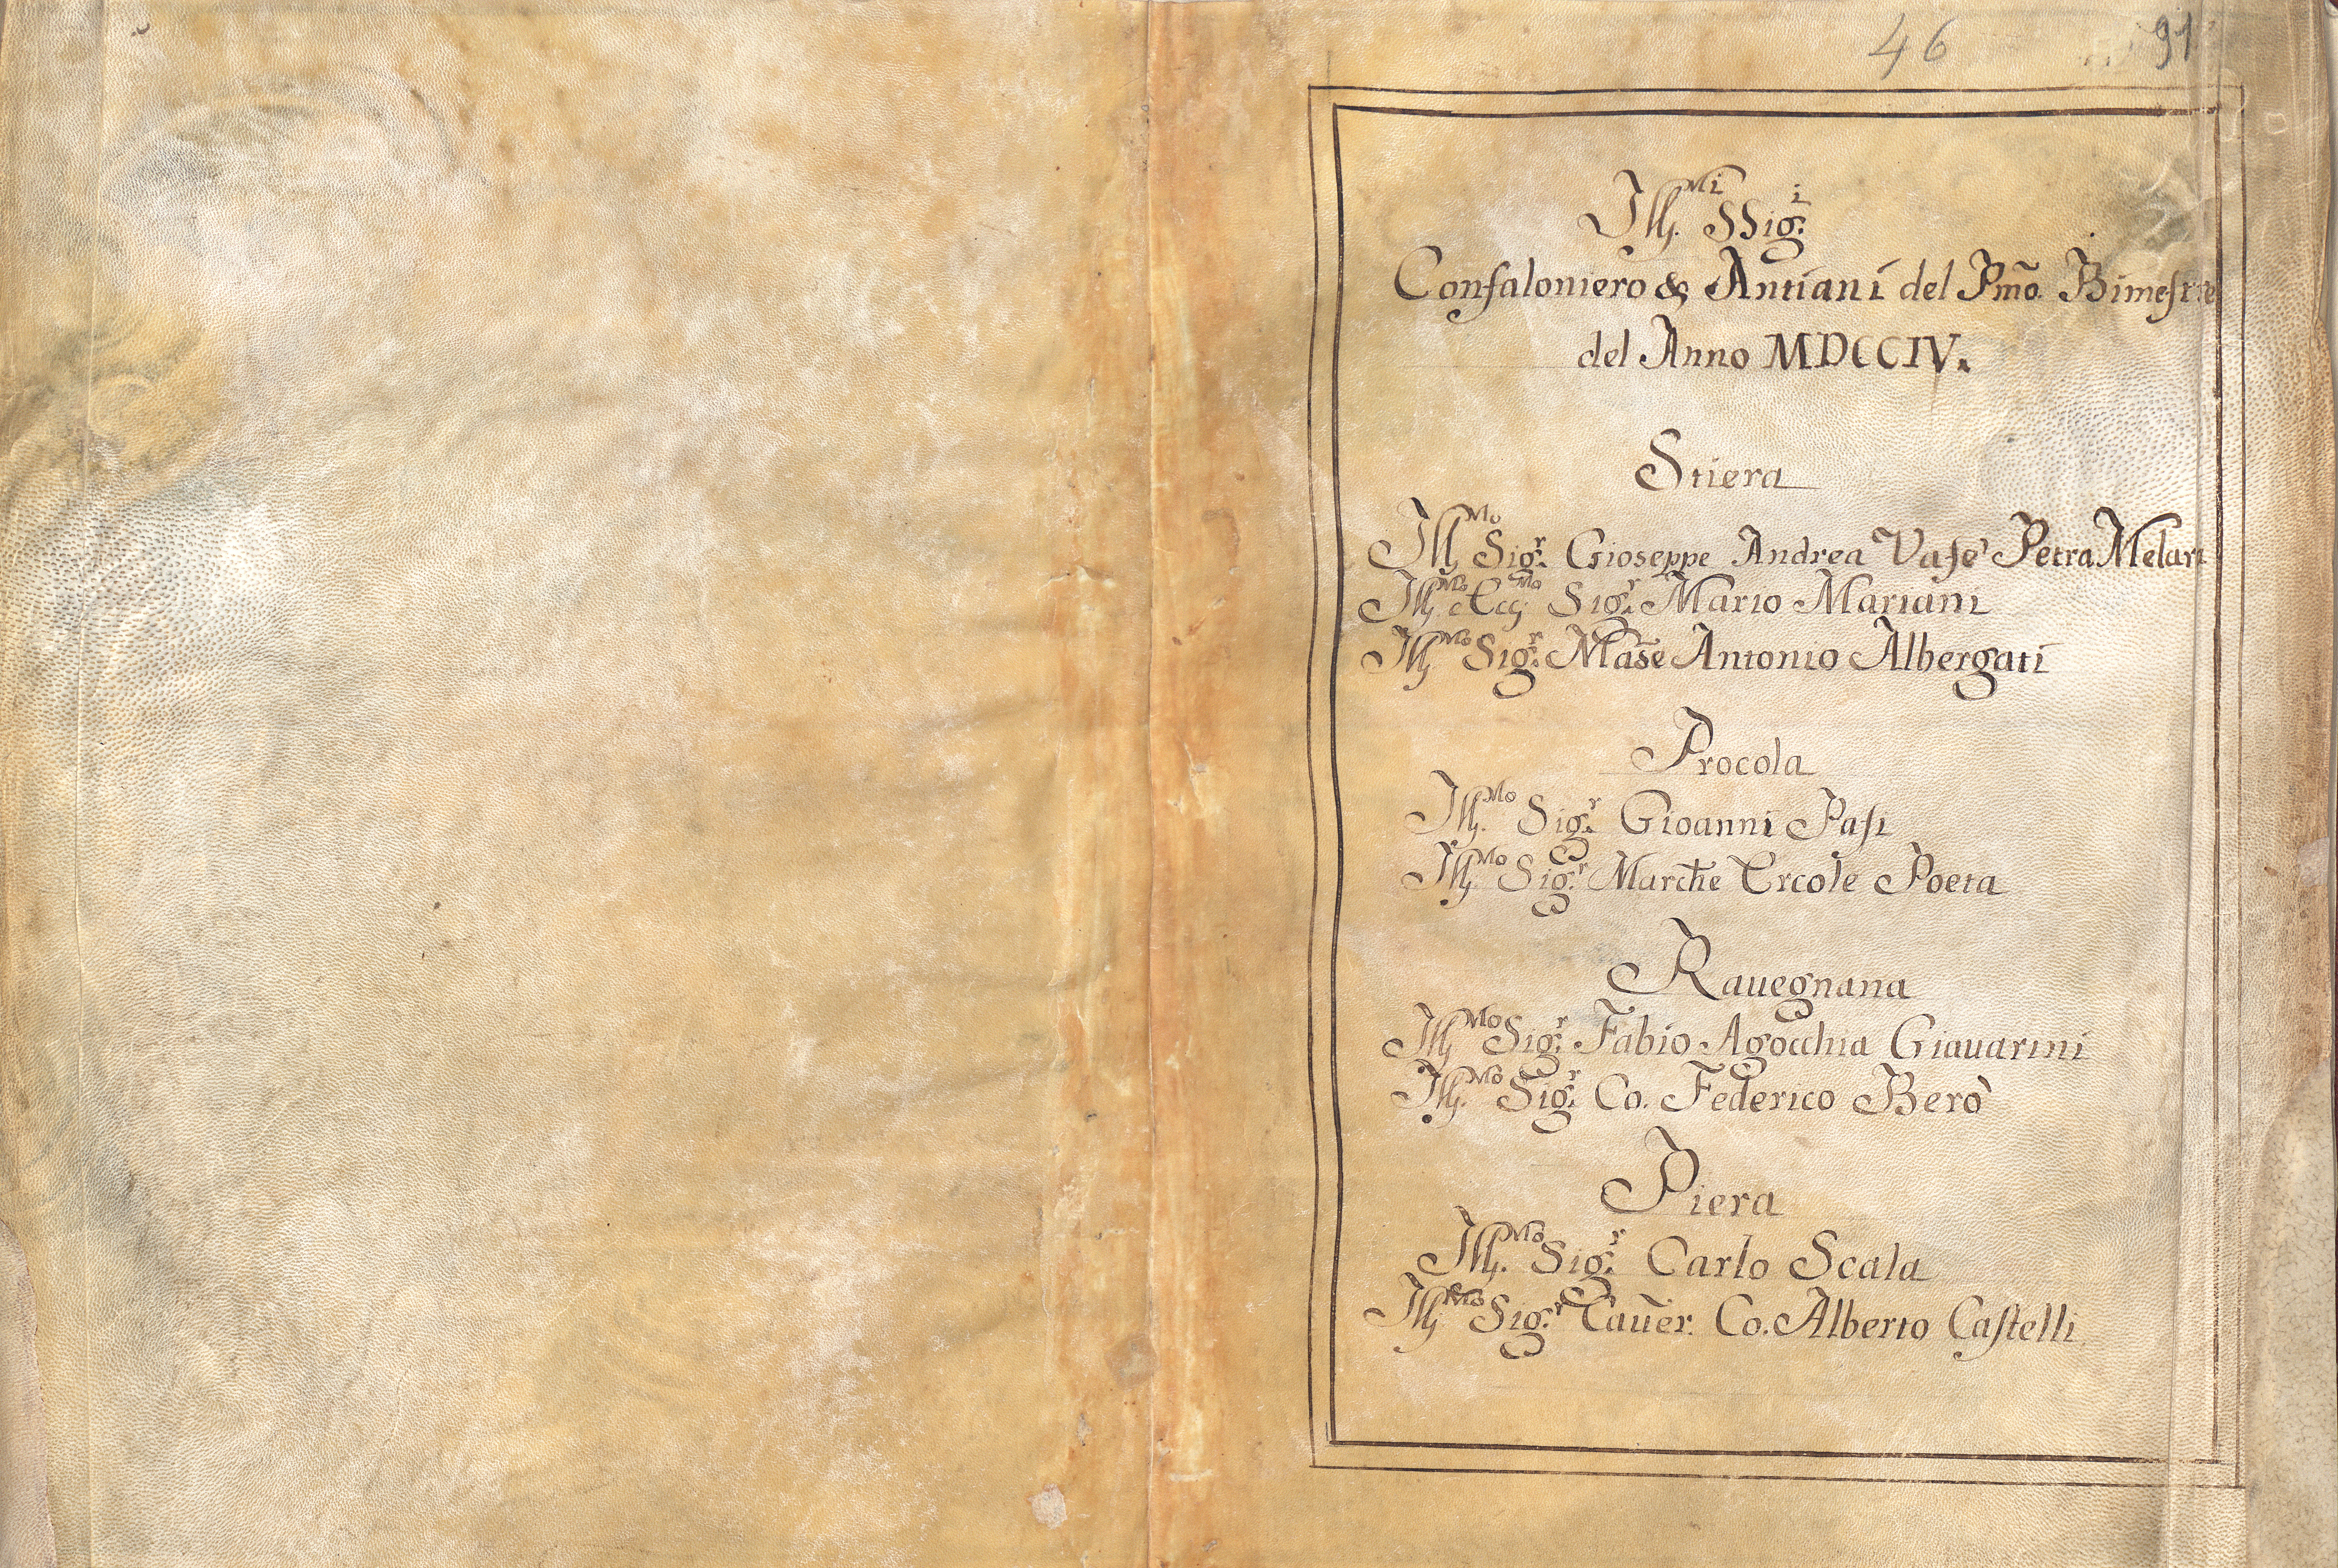 46 91
Ill.mi SSig.i
Confaloniero & Antiani del Pmõ. Bimestre
del Anno MDCCIV.
Stiera
Ill.mo Sig.r Gioseppe Andrea Vasè Petra Melari
Ill.mo e Ecc.mo Sig.r Mario Mariani
Ill.mo Sig.r Mãse Antonio Albergati
Procola
Ill.mo Sig.r Gioanni Pasi
Ill.mo Sig.r Marche Ercole Poeta
Rauegnana
Ill.mo Sig.r Fabio Agocchia Giauarini
Ill.mo Sig.r Co. Federico Berò
Piera
Ill.mo Sig.r Carlo Scala
Ill.mo Sig.r Caũer. Co. Alberto Castelli